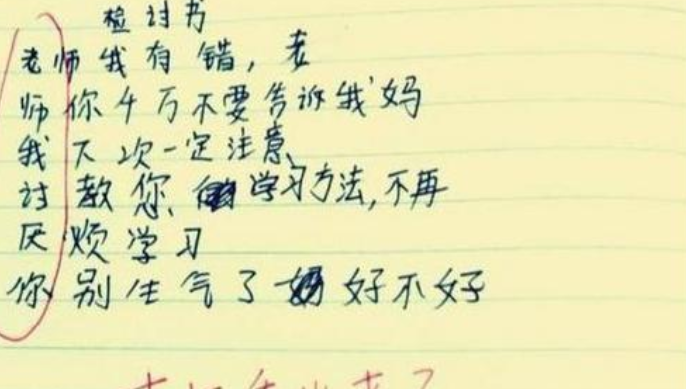 检讨书
老师我有错，老
师你千万不要告诉我妈
我下次一定注意、
讨教您、学习方法,不再
厌烦学习
你别生气了好不好